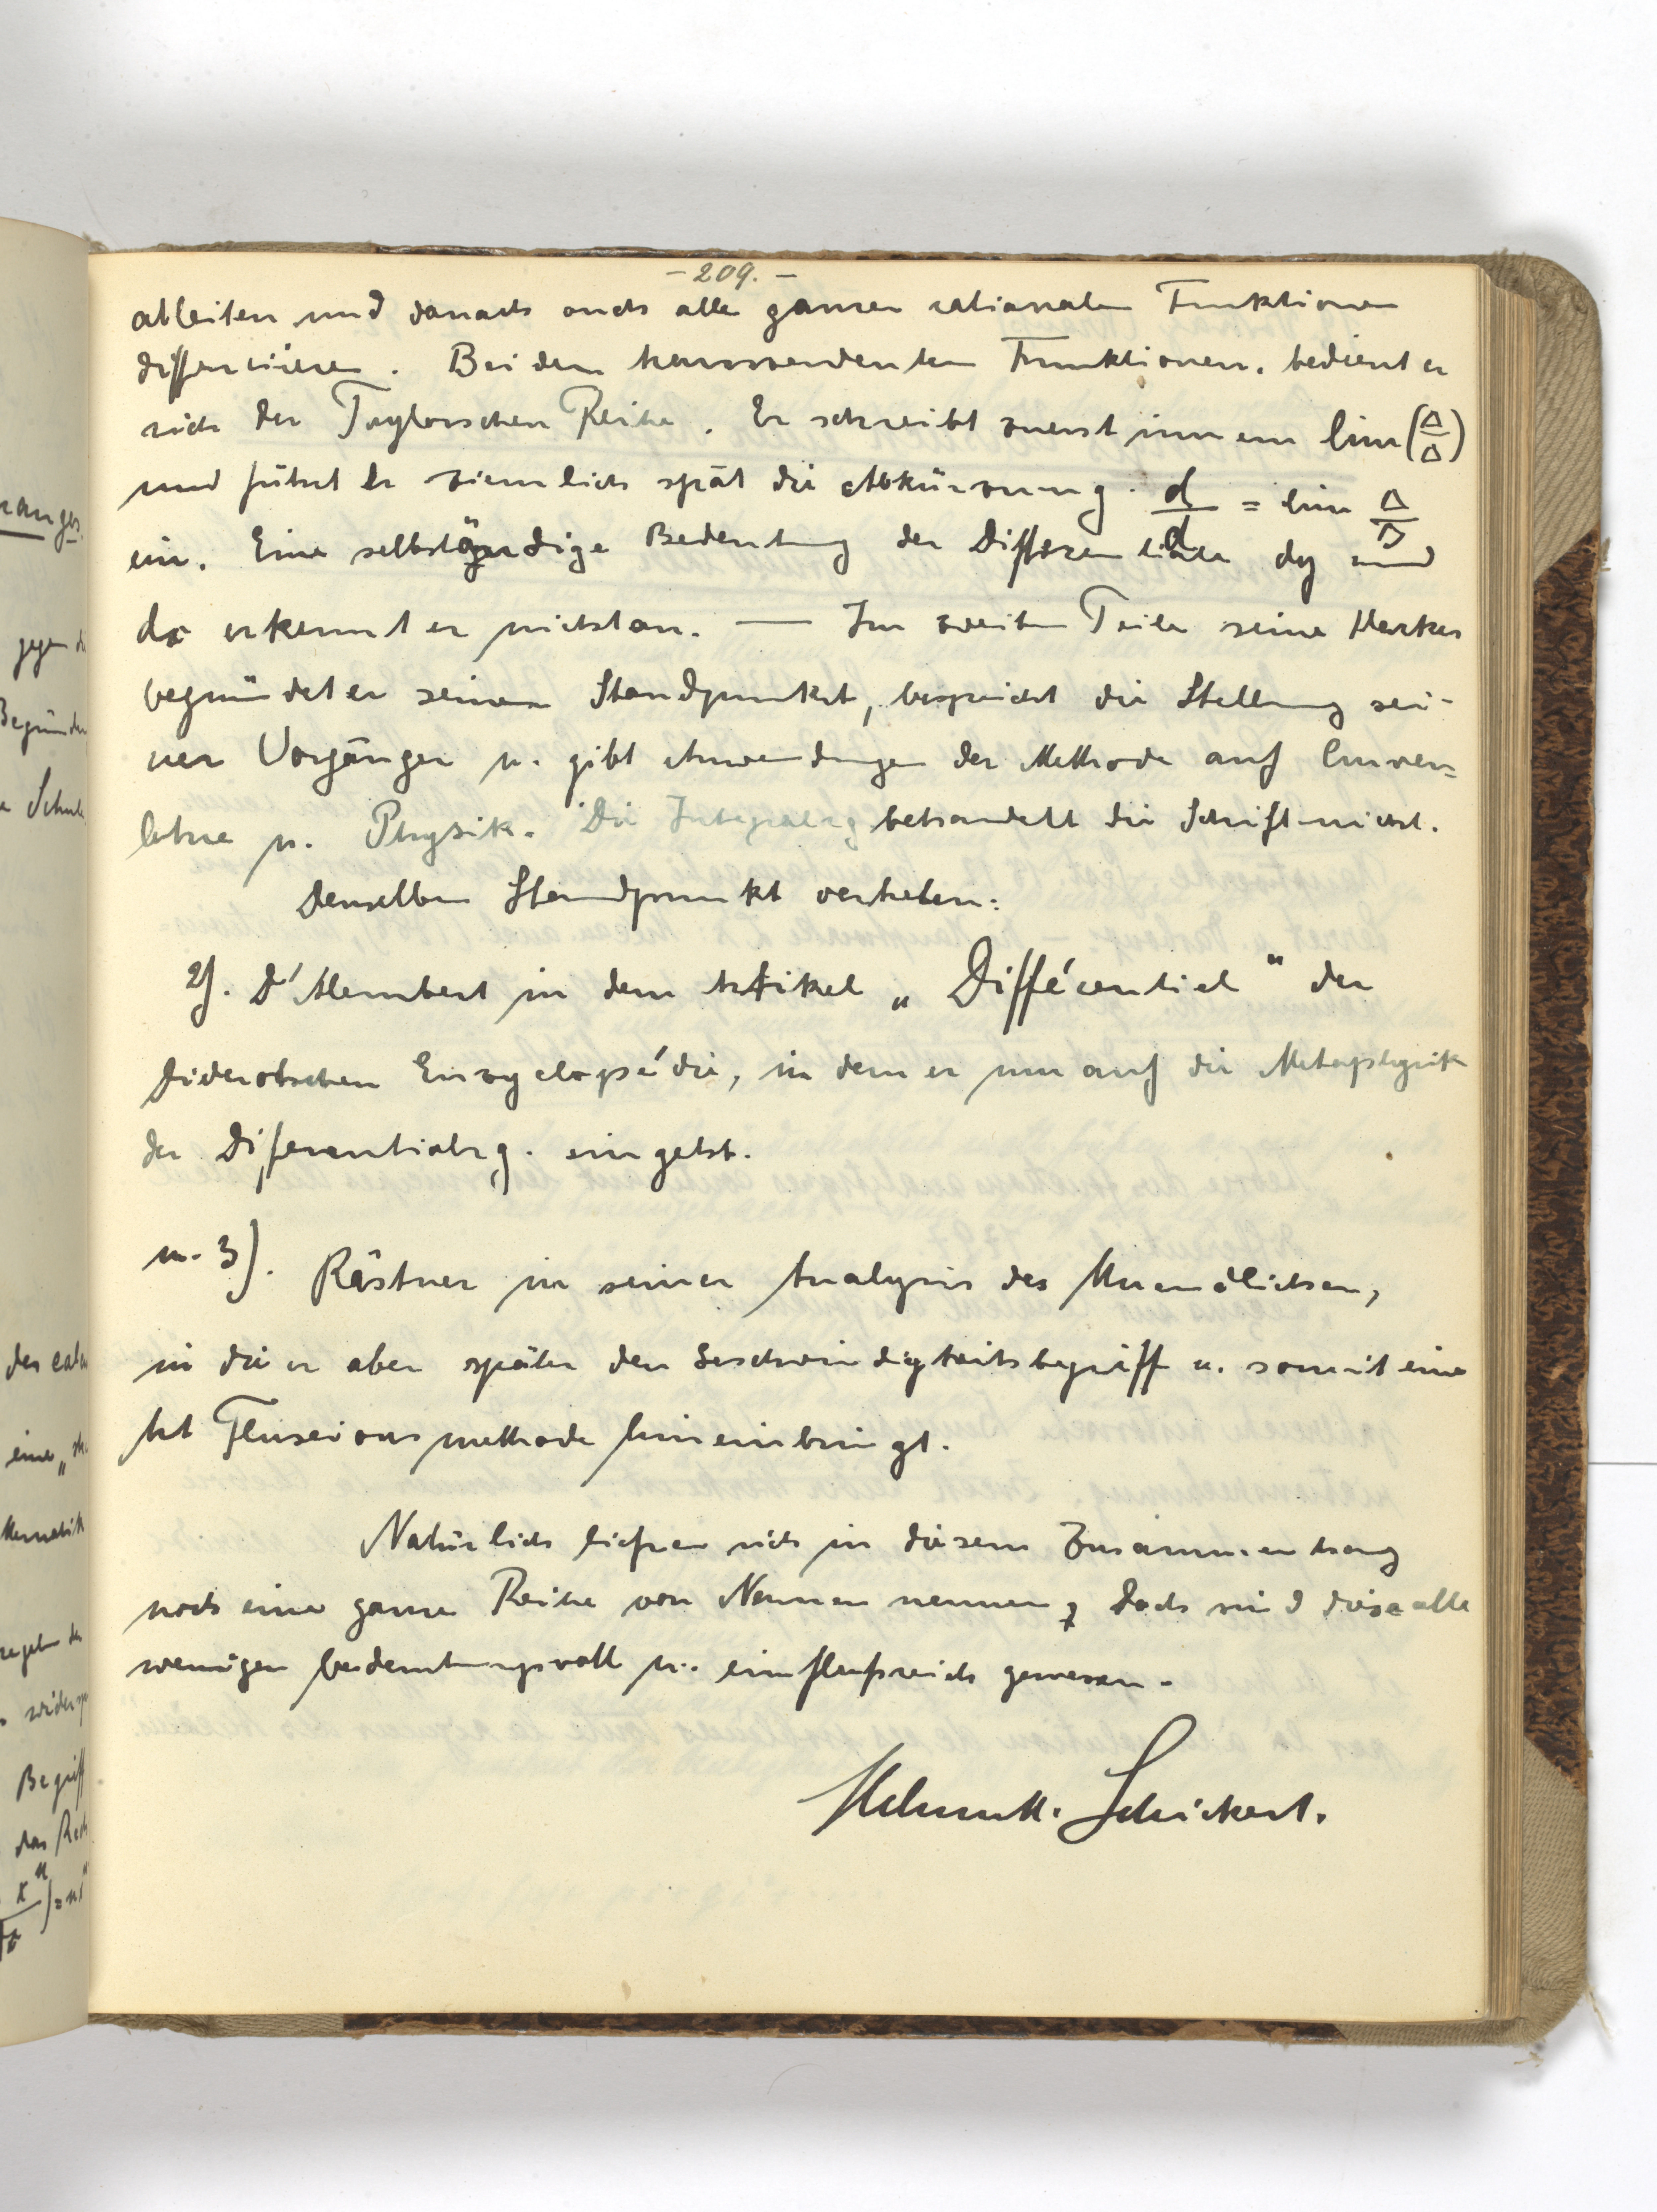 - 209. -
ableiten und danach auch alle ganzen rationalen Funktionen
differenzieren. Bei den transzendenten Funktionen bedient er
sich der Taylorschen Reihe. Er schreibt zuerst immer lim (Δ/Δ)
und führt er ziemlich spät die Abkürzung d/d = lim Δ/Δ
ein. Eine selbständige Bedeutung der Differentiale dy und
dx erkennt er nicht an. — Im zweiten Teile seines Werkes
begründet er seinen Standpunkt, bespricht die Stellung sei-
ner Vorgänger u. gibt Anwendungen der Methode auf Curven=
lehre u. Physik. Die Integralrg behandelt die Schrift nicht.
Denselben Standpunkt vertreten:
2). D'Alembert in dem Artikel „Différentiel" der
Diderotschen Encyclopédie, in dem er nur auf die Metaphysik
der Diferentialrg. eingeht.
u. 3). Kästner in seiner Analysis des Unendlichen,
in die er aber später den Geschwindigkeitsbegriff u. somit eine
Art Fluxionsmethode hineinbringt.
Natürlich ließen sich in diesem Zusammenhang
noch eine ganze Reihe von Namen nennen, doch sind diese alle
weniger bedeutungsvoll u. einflußreich gewesen.
Helmuth Schickert.
ranges
gegen di
Begründer
Schule
des calcu
eine „
thematik
regeln der
wider
Begriff
das Rech